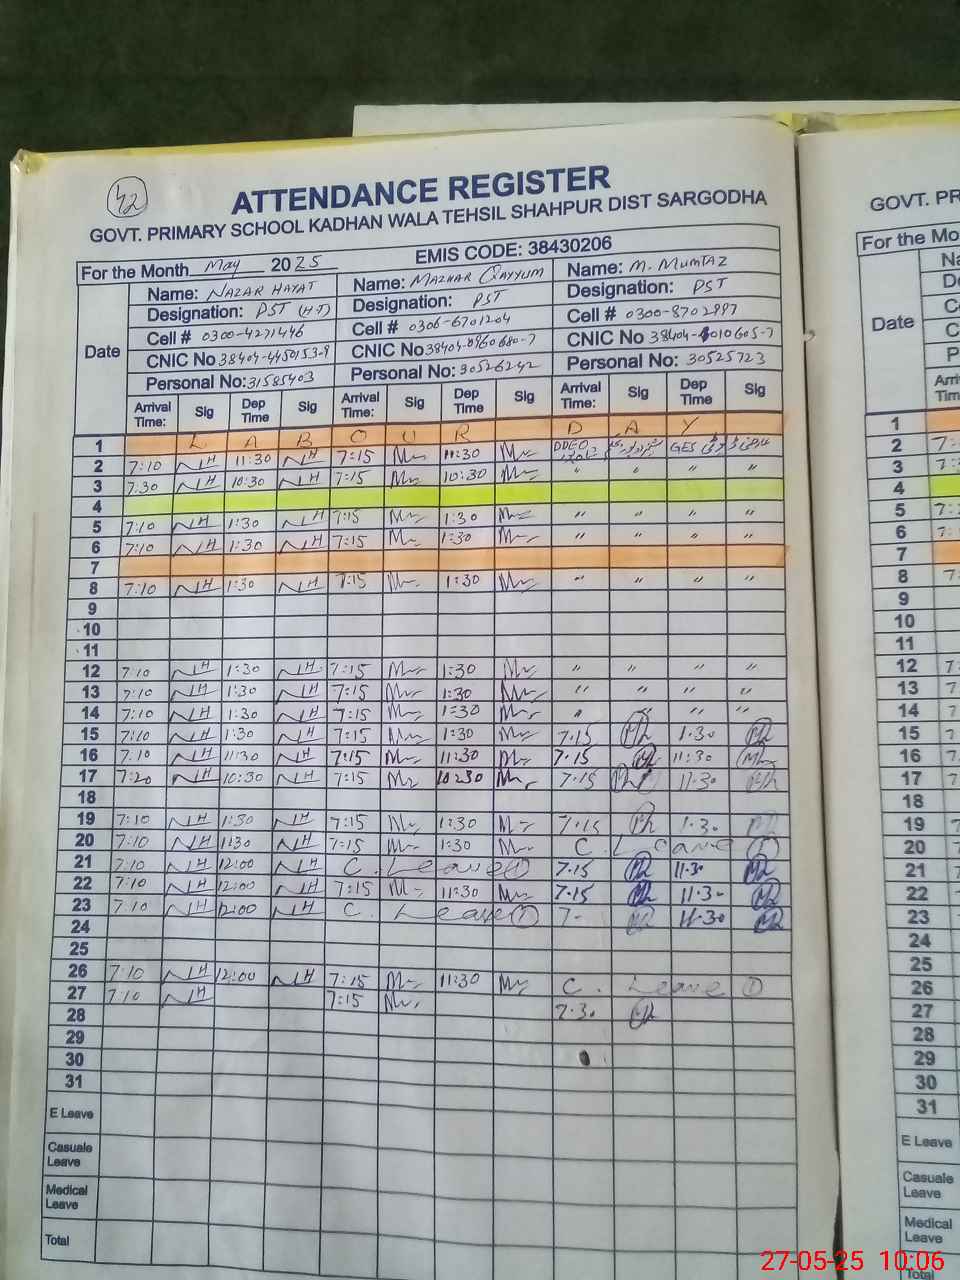 42
ATTENDANCE REGISTER
GOVT. PRIMARY SCHOOL KADHAN WALA TEHSIL SHAHPUR DIST SARGODHA
For the Month May 2025 EMIS CODE: 38430206
Name: NAZAR HAYAT Name: MAZHAR QAYYUM Name: M. MUMTAZ
Designation: PST (HT) Designation: PST Designation: PST
Cell # 0300-4271446 Cell # 0306-6701204 Cell # 0300-8702997
Date CNIC No 38404-4450153-9 CNIC No 38404-0960680-7 CNIC No 38404-8010605-7
Personal No: 31585403 Personal No: 30526242 Personal No: 30525723
Arrival Time: Sig Dep Time Sig Arrival Time: Sig Dep Time Sig Arrival Time: Sig Dep Time Sig
1 L A B O U R D A Y
2 7:10 NH 11:30 NH 7:15 11:30 DDEO GES
3 7:30 NH 10:30 NH 7:15 10:30 " " " "
4
5 7:10 NH 1:30 NH 7:15 1:30 " " " "
6 7:10 NH 1:30 NH 7:15 1:30 " " " "
7
8 7:10 NH 1:30 NH 7:15 1:30 " " " "
9
10
11
12 7:10 NH 1:30 NH 7:15 1:30 " " " "
13 7:10 NH 1:30 NH 7:15 1:30 " " " "
14 7:10 NH 1:30 NH 7:15 1:30 " " " "
15 7:10 NH 1:30 NH 7:15 1:30 7.15 1.30
16 7:10 NH 11:30 NH 7:15 11:30 7.15 11:30
17 7:20 NH 10:30 NH 7:15 10:30 7.15 11.30
18
19 7:10 NH 1:30 NH 7:15 1:30 7.15 1.30
20 7:10 NH 1:30 NH 7:15 1:30 C. Leave 1
21 7:10 NH 12:00 NH C. Leave 1 7.15 11.30
22 7:10 NH 12:00 NH 7:15 11:30 7.15 11.30
23 7:10 NH 12:00 NH C. Leave 7- 11.30
24
25
26 7:10 NH 12:00 NH 7:15 11:30 C. Leave 1
27 7:10 NH 7:15 7.30
28
29
30
31
E Leave
Casuale Leave
Medical Leave
Total
GOVT. PR
For the Mo
Na
De
C
Date C
P
Arri
Tim
1
2 7:
3 7:
4
5 7:
6 7:
7
8 7
9
10
11
12 7
13 7
14 7
15 7
16 7
17 7
18
19 7
20 7
21 7
22 7
23 7
24
25
26
27
28
29
30
31
E Leave
Casuale Leave
Medical Leave
Total
27-05-25 10:06